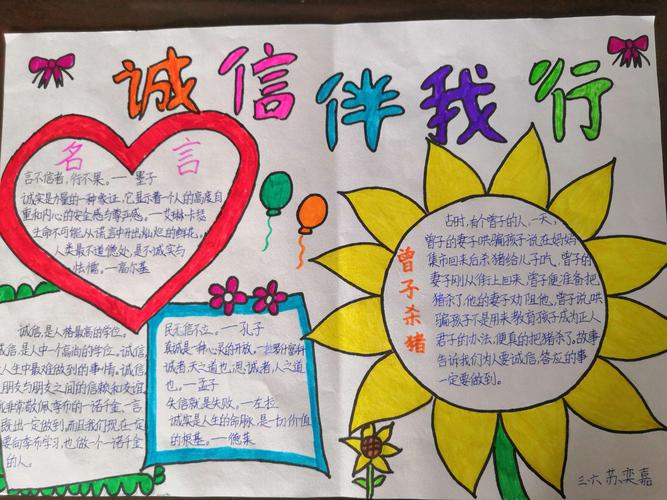 诚信伴我行
名言
言不信者,行不果。——墨子
诚实是力量的一种象征,它显示着一个人的高度自
重和内心的安全感与尊严感。——艾琳卡瑟
生命不可能从谎言中开出灿烂的鲜花。
人类最不道德处,是不诚实与
怯懦。——高尔基
诚信,是人格最高的学位。
诚信,是人中一个高尚的学位。诚信,
人生中最难做到的事情。诚信,
朋友与朋友之间的信赖和友谊,
我非常敬佩季布的一诺千金、言
既出一定做到,而且我们现在一定
要向季布学习,也做一个一诺千金
的人。
民无信不立。——孔子
真诚是一种心灵的开放。——拉罗什富科
诚者,天之道也,思诚者,人之道
也。——孟子
失信就是失败。——左拉
诚实是人生的命脉,是一切价值
的根基。——德莱
曾子杀猪
古时,有个曾子的人,一天,
曾子的妻子哄骗孩子说在妈妈
集市回来后杀猪给儿子吃,曾子的
妻子刚从街上回来,曾子便准备把
猪杀了,他的妻子劝阻他,曾子说,哄
骗孩子不是用来教育孩子成为正人
君子的办法,便真的把猪杀了。故事
告诉我们为人要诚信,答应的事
一定要做到。
三六 苏奕嘉